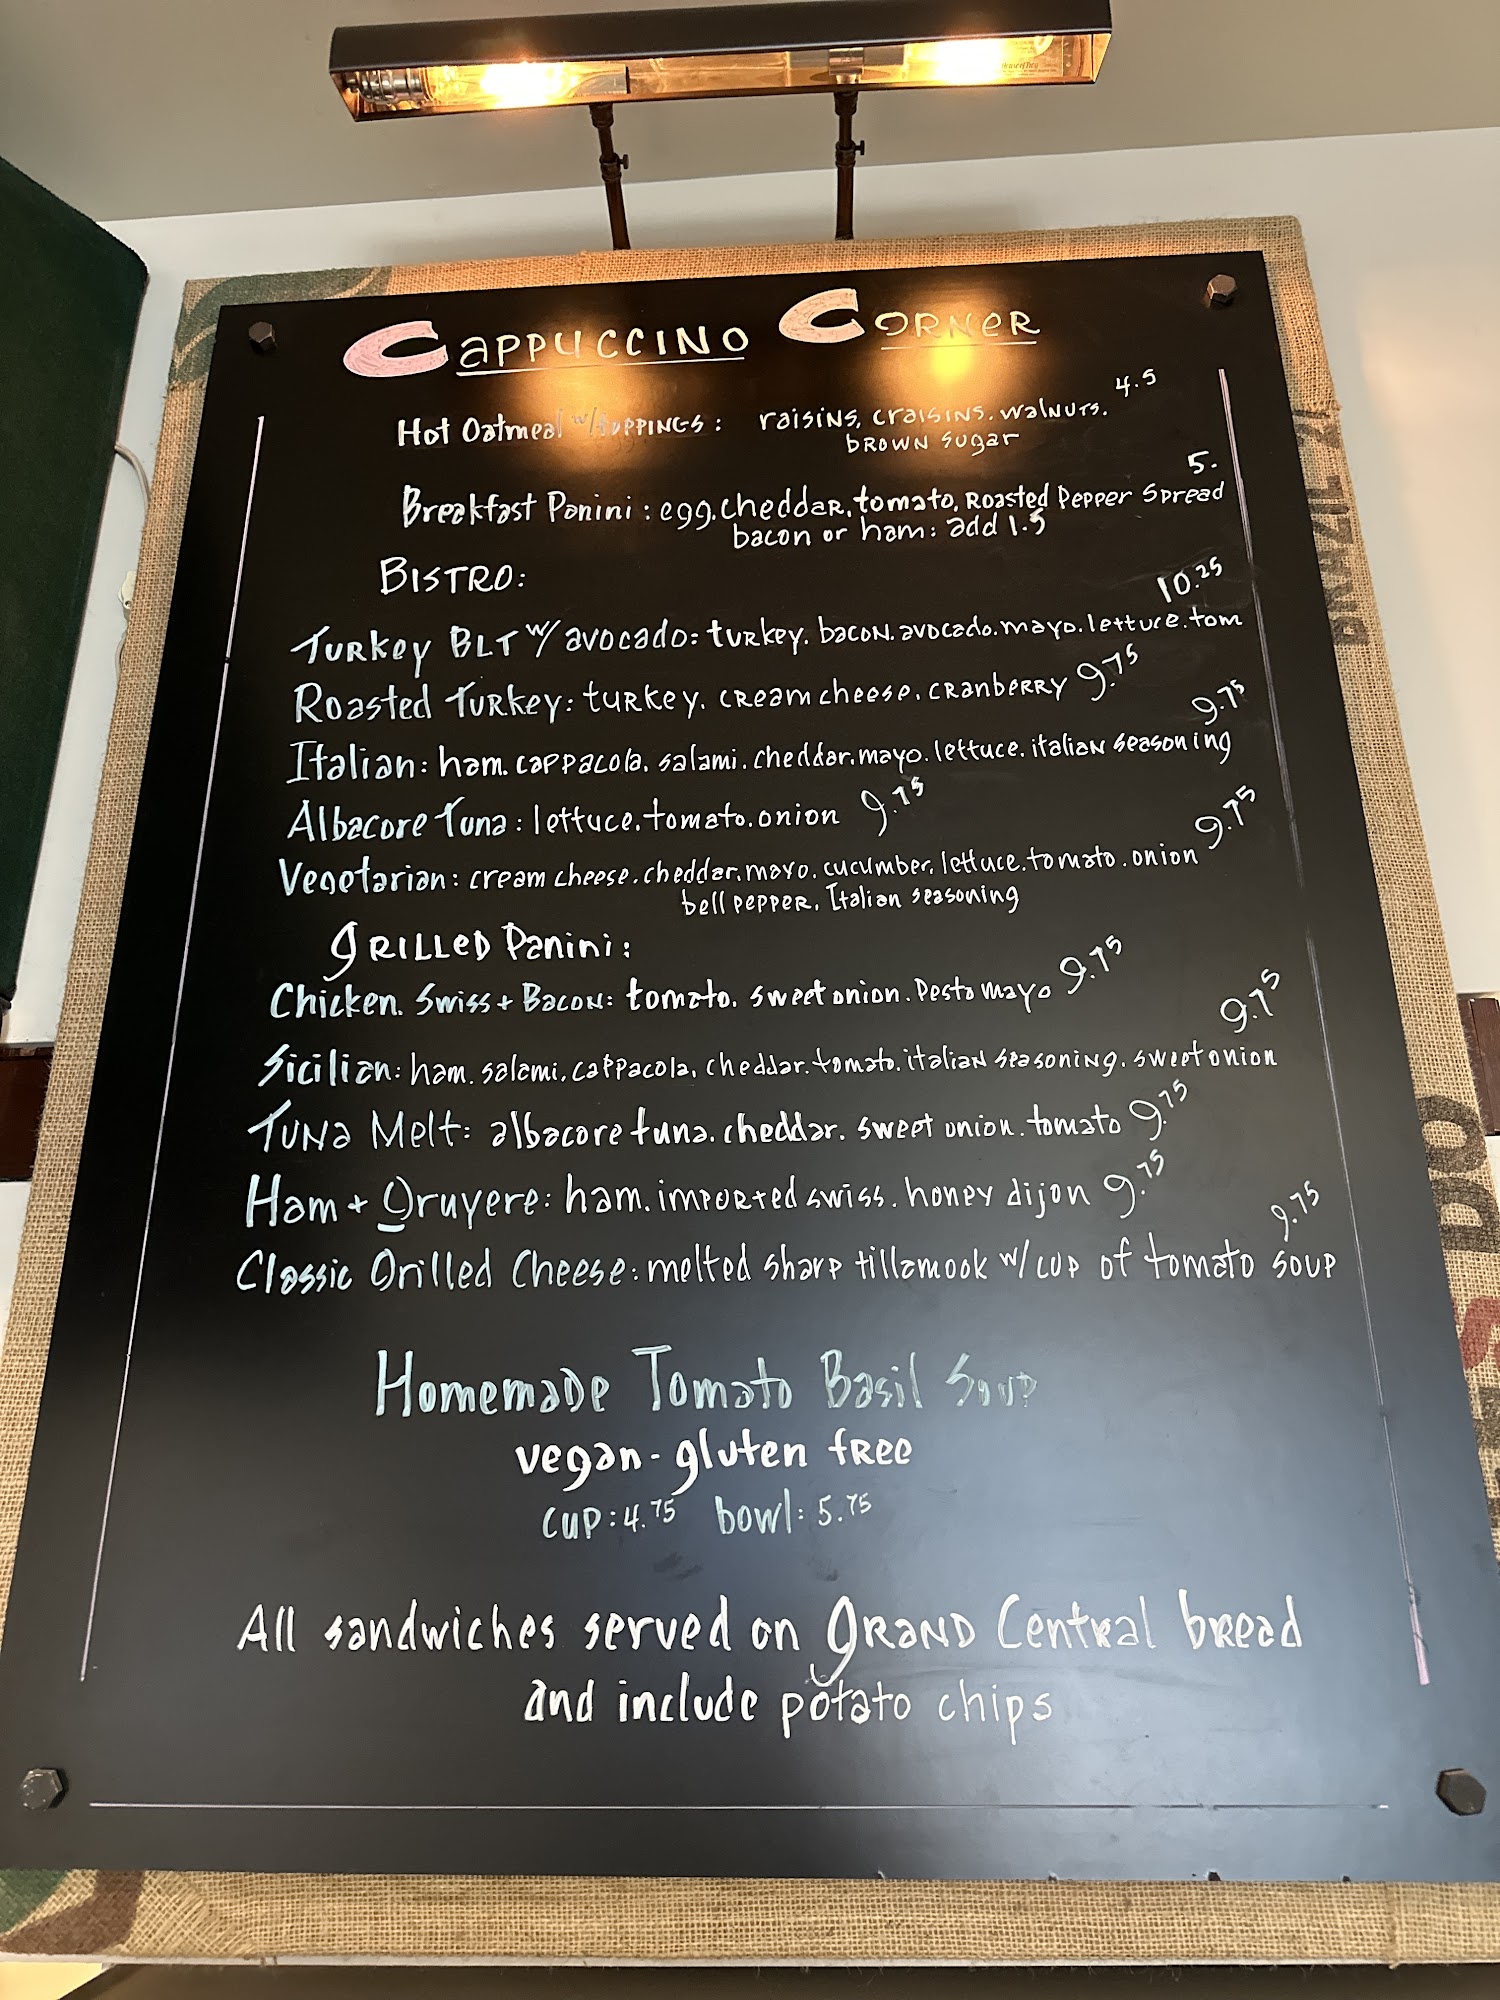 Cappuccino Corner
Hot Oatmeal w/toppings: raisins, craisins. walnuts. 4.5
brown sugar
Breakfast Panini: egg. cheddar. tomato. Roasted Pepper Spread 5.
bacon or ham: add 1.5
Bistro:
Turkey BLT w/ avocado: turkey. bacon. avocado. mayo. lettuce. tom 10.25
Roasted Turkey: turkey. cream cheese. cranberry 9.75
Italian: ham. cappacola. salami. cheddar. mayo. lettuce. italian seasoning 9.75
Albacore Tuna: lettuce. tomato. onion 9.75
Vegetarian: cream cheese. cheddar. mayo. cucumber. lettuce. tomato. onion 9.75
bell pepper. Italian seasoning
Grilled Panini:
Chicken. Swiss + Bacon: tomato. sweet onion. Pesto mayo 9.75
Sicilian: ham. salami. cappacola. cheddar. tomato. italian seasoning. sweet onion 9.75
Tuna Melt: albacore tuna. cheddar. sweet onion. tomato 9.75
Ham + Gruyere: ham. imported swiss. honey dijon 9.75
Classic Grilled Cheese: melted sharp tillamook w/ cup of tomato soup 9.75
Homemade Tomato Basil Soup
vegan - gluten free
cup: 4.75 bowl: 5.75
All sandwiches served on Grand Central bread
and include potato chips